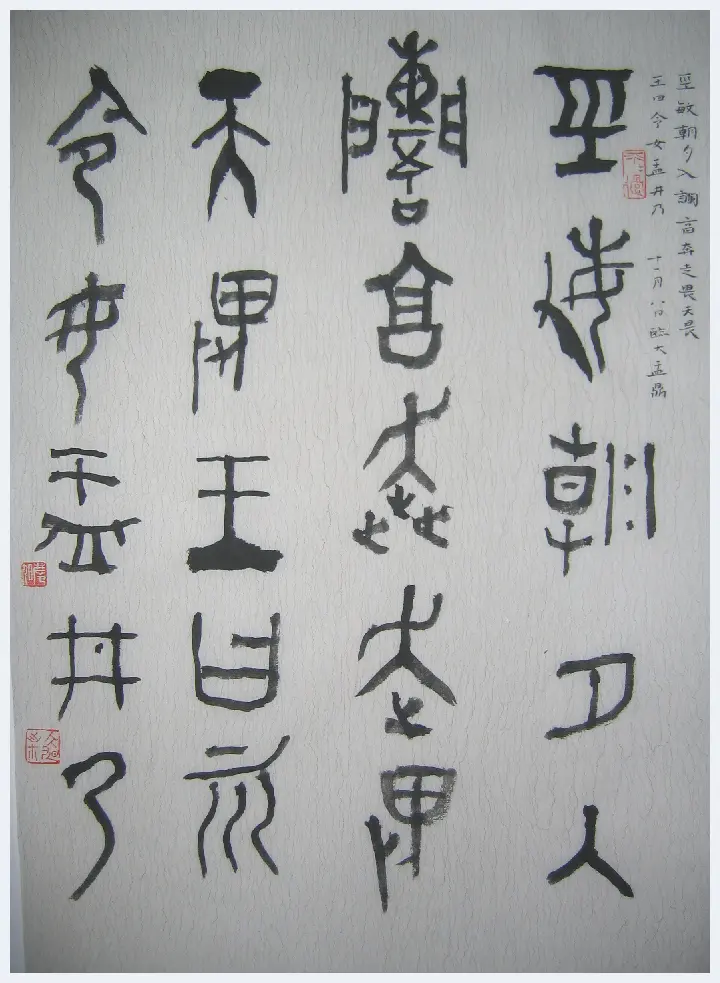 巠敏朝夕入讕亯奔走畏天畏
王曰令女盂井乃 十一月八日臨大盂鼎
巠敏朝夕入
讕亯奔走畏
天畏王曰而
令女盂井乃